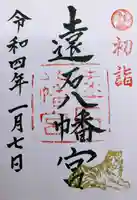 初詣
遠石八幡宮
令和四年一月七日